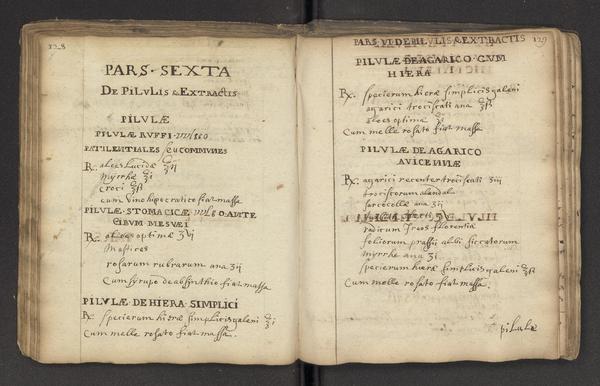 128
PARS · SEXTA
DE PILULIS & EXTRACTIS
PILULÆ
PILULÆ RUFFI
PESTILENTIALES seu COMMUNES
℞. aloes Lucidæ ʒvij
Myrrhæ ʒi
croci ʒß
cum vino hipocratico fiat massa
PILULÆ · STOMACICÆ ANTE
CIBUM MESUÆI
℞. aloes optimæ ʒvi
Mastices
rosarum rubrarum ana ʒij
Cum syrupo de absinthio fiat massa
PILULÆ DE HIERA · SIMPLICI
℞. specierum hieræ simplicis galeni ʒi
Cum melle rosato fiat massa
PARS VI DE PILULIS & EXTRACTIS 129
PILULÆ DE AGARICO · CUM
HIERA
℞. specierum hieræ simplicis galeni
agarici trociscati ana ʒß
aloes optimæ ʒi
Cum melle rosato fiat massa
PILULÆ DE AGARICO
AVICENNÆ
℞. agarici recenter trociscati ʒiij
trociscorum alandal
sarcocollæ ana ʒij
radicum Ireos florentiæ
foliorum prassij albi siccatorum
Myrrhæ ana ʒi
specierum hieræ simplicis galeni ʒß
Cum melle rosato fiat massa
pilulæ